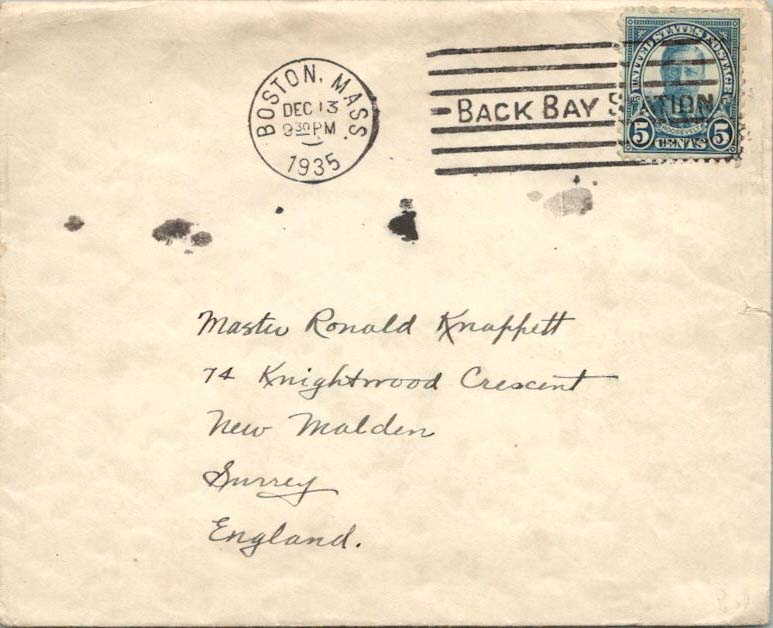 BOSTON, MASS.
DEC 13
9 30 PM
1935
BACK BAY STATION
UNITED STATES POSTAGE
ROOSEVELT
5 CENTS 5
Master Ronald Knappett
74 Knightwood Crescent
New Malden
Surrey
England.